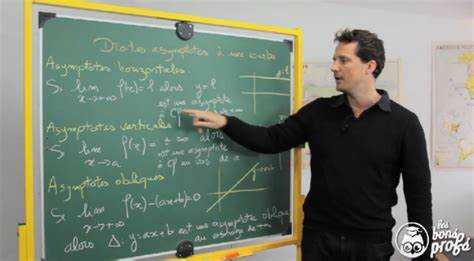 Droites asymptotes à une courbe
Asymptotes horizontales
Si lim f(x) = l alors y = l
x→+∞
est une asymptote
à Cf au vois. de +∞
Asymptotes verticales
Si lim f(x) = ± ∞ alors
x→a
est une asymptote
à Cf au vois. de a
Asymptotes obliques
Si lim f(x) - (ax+b) = 0
x→+∞
alors Δ: y = ax + b est une asymptote oblique
au voisinage de +∞
les
bons
profs